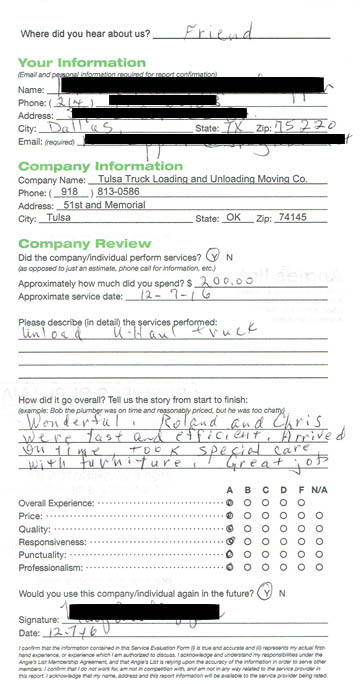 Where did you hear about us? Friend
Your Information
(Email and personal information required for report confirmation)
Name:
Phone: (214)
Address:
City: Dallas, State: TX Zip: 75220
Email: (required)
Company Information
Company Name: Tulsa Truck Loading and Unloading Moving Co.
Phone: ( 918 ) 813-0586
Address: 51st and Memorial
City: Tulsa State: OK Zip: 74145
Company Review
Did the company/individual perform services? Y N
(as opposed to just an estimate, phone call for information, etc.)
Approximately how much did you spend? $ 200.00
Approximate service date: 12-7-16
Please describe (in detail) the services performed:
Unload U-Haul truck
How did it go overall? Tell us the story from start to finish:
(example: Bob the plumber was on time and reasonably priced, but he was too chatty)
Wonderful. Roland and Chris
were fast and efficient. Arrived
on time took special care
with furniture. Great job
A B C D F N/A
Overall Experience:
Price:
Quality:
Responsiveness:
Punctuality:
Professionalism:
Would you use this company/individual again in the future? Y N
Signature:
Date: 12-7-16
I confirm that the information contained in this Service Evaluation Form (i) is true and accurate and (ii) represents my actual first-
hand experience, or experience which I am authorized to discuss. I acknowledge and understand my responsibilities under the
Angie's List Membership Agreement, and that Angie's List is relying upon the accuracy of the information in order to serve other
members. I confirm that I do not work for, am not in competition with, and am not in any way related to the service provider in
this report. I acknowledge that my name, address and this report information will be available to the service provider being rated.